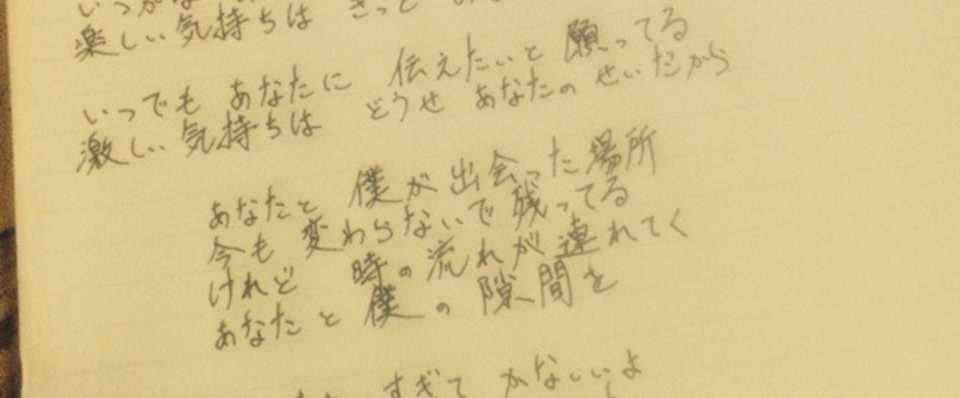 楽しい気持ちは きっと
いつでも あなたに 伝えたいと 願ってる
激しい気持ちは どうせ あなたの せいだから
あなたと 僕が 出会った場所
今も 変わらないで 残ってる
けれど 時の流れが 連れてく
あなたと 僕の 隙間を
すぎて かなしいよ